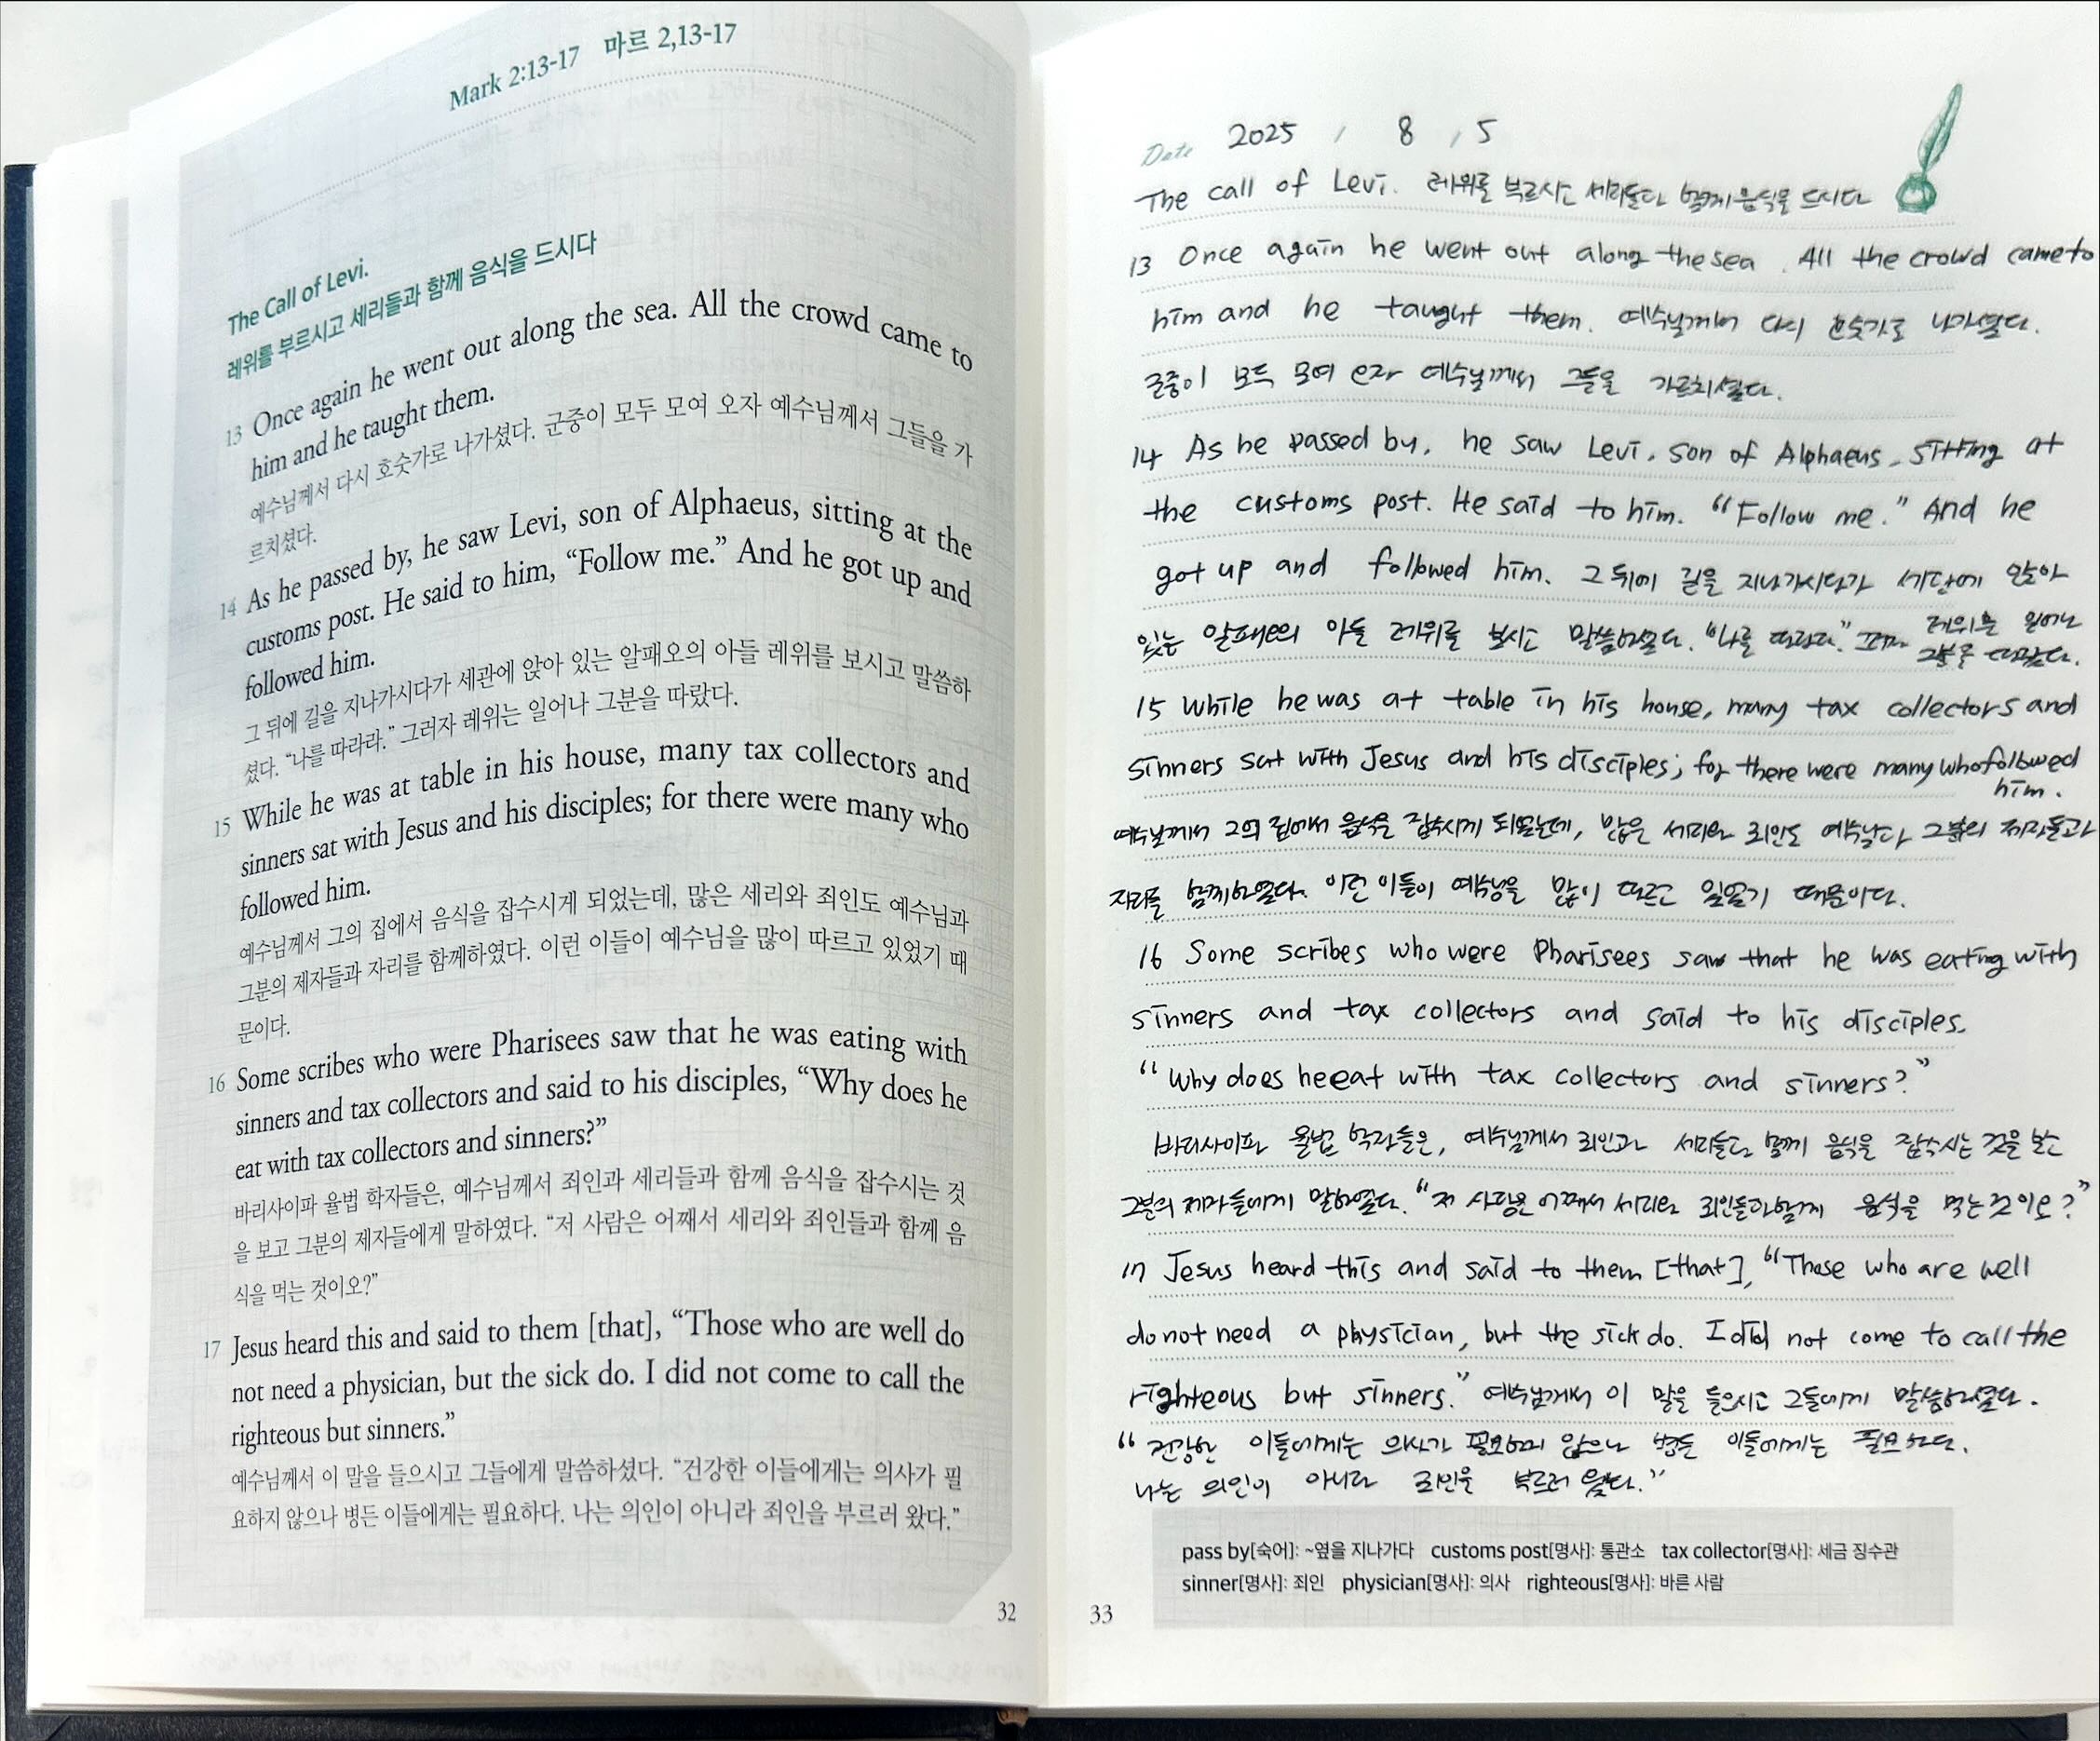 Mark 2:13-17 마르 2,13-17
The Call of Levi.
레위를 부르시고 세리들과 함께 음식을 드시다
13 Once again he went out along the sea. All the crowd came to
him and he taught them.
예수님께서 다시 호숫가로 나가셨다. 군중이 모두 모여 오자 예수님께서 그들을 가
르치셨다.
14 As he passed by, he saw Levi, son of Alphaeus, sitting at the
customs post. He said to him, “Follow me.” And he got up and
followed him.
그 뒤에 길을 지나가시다가 세관에 앉아 있는 알패오의 아들 레위를 보시고 말씀하
셨다. “나를 따라라.” 그러자 레위는 일어나 그분을 따랐다.
15 While he was at table in his house, many tax collectors and
sinners sat with Jesus and his disciples; for there were many who
followed him.
예수님께서 그의 집에서 음식을 잡수시게 되었는데, 많은 세리와 죄인도 예수님과
그분의 제자들과 자리를 함께하였다. 이런 이들이 예수님을 많이 따르고 있었기 때
문이다.
16 Some scribes who were Pharisees saw that he was eating with
sinners and tax collectors and said to his disciples, “Why does he
eat with tax collectors and sinners?”
바리사이파 율법 학자들은, 예수님께서 죄인과 세리들과 함께 음식을 잡수시는 것
을 보고 그분의 제자들에게 말하였다. “저 사람은 어째서 세리와 죄인들과 함께 음
식을 먹는 것이오?”
17 Jesus heard this and said to them [that], “Those who are well do
not need a physician, but the sick do. I did not come to call the
righteous but sinners.”
예수님께서 이 말을 들으시고 그들에게 말씀하셨다. “건강한 이들에게는 의사가 필
요하지 않으나 병든 이들에게는 필요하다. 나는 의인이 아니라 죄인을 부르러 왔다.”
32
Date 2025 / 8 / 5
The call of Levi. 레위를 부르시고 세리들과 함께 음식을 드시다
13 Once again he went out along the sea. All the crowd came to
him and he taught them. 예수님께서 다시 호숫가로 나가셨다.
군중이 모두 모여 오자 예수님께서 그들을 가르치셨다.
14 As he passed by, he saw Levi, son of Alphaeus, sitting at
the customs post. He said to him. “Follow me.” And he
got up and followed him. 그 뒤에 길을 지나가시다가 세관에 앉아
있는 알패오의 아들 레위를 보시고 말씀하셨다. “나를 따라라.” 그러자 레위는 일어나
그분을 따랐다.
15 While he was at table in his house, many tax collectors and
sinners sat with Jesus and his disciples; for there were many who followed
him.
예수님께서 그의 집에서 음식을 잡수시게 되었는데, 많은 세리와 죄인도 예수님과 그분의 제자들과
자리를 함께하였다. 이런 이들이 예수님을 많이 따르고 있었기 때문이다.
16 Some scribes who were Pharisees saw that he was eating with
sinners and tax collectors and said to his disciples.
“Why does he eat with tax collectors and sinners?”
바리사이파 율법 학자들은, 예수님께서 죄인과 세리들과 함께 음식을 잡수시는 것을 보고
그분의 제자들에게 말하였다. “저 사람은 어째서 세리와 죄인들과 함께 음식을 먹는 것이오?”
17 Jesus heard this and said to them [that], “Those who are well
do not need a physician, but the sick do. I did not come to call the
righteous but sinners.” 예수님께서 이 말을 들으시고 그들에게 말씀하셨다.
“건강한 이들에게는 의사가 필요하지 않으나 병든 이들에게는 필요하다.
나는 의인이 아니라 죄인을 부르러 왔다.”
pass by[숙어]: ~옆을 지나가다 customs post[명사]: 통관소 tax collector[명사]: 세금 징수관
sinner[명사]: 죄인 physician[명사]: 의사 righteous[명사]: 바른 사람
33